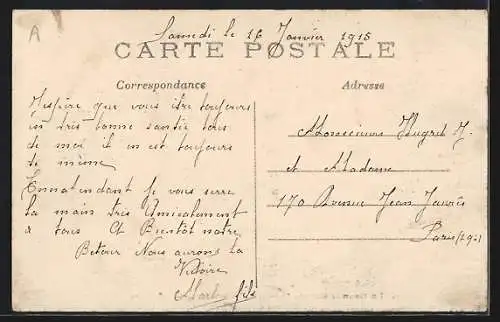 A
Samedi le 16 Janvier 1915
CARTE POSTALE
Correspondance
Adresse
J'espère que vous être toujours
en très bonne santée tous
de moi il en est toujours
de même
En attendant Je vous serre
la main très Amicalement
a tous Et Bientôt notre
Retour Nous aurons la
Victoire
fils
Monsieur Hugret
et Madame
170 Avenue Jean Jaurès
Paris (19e)